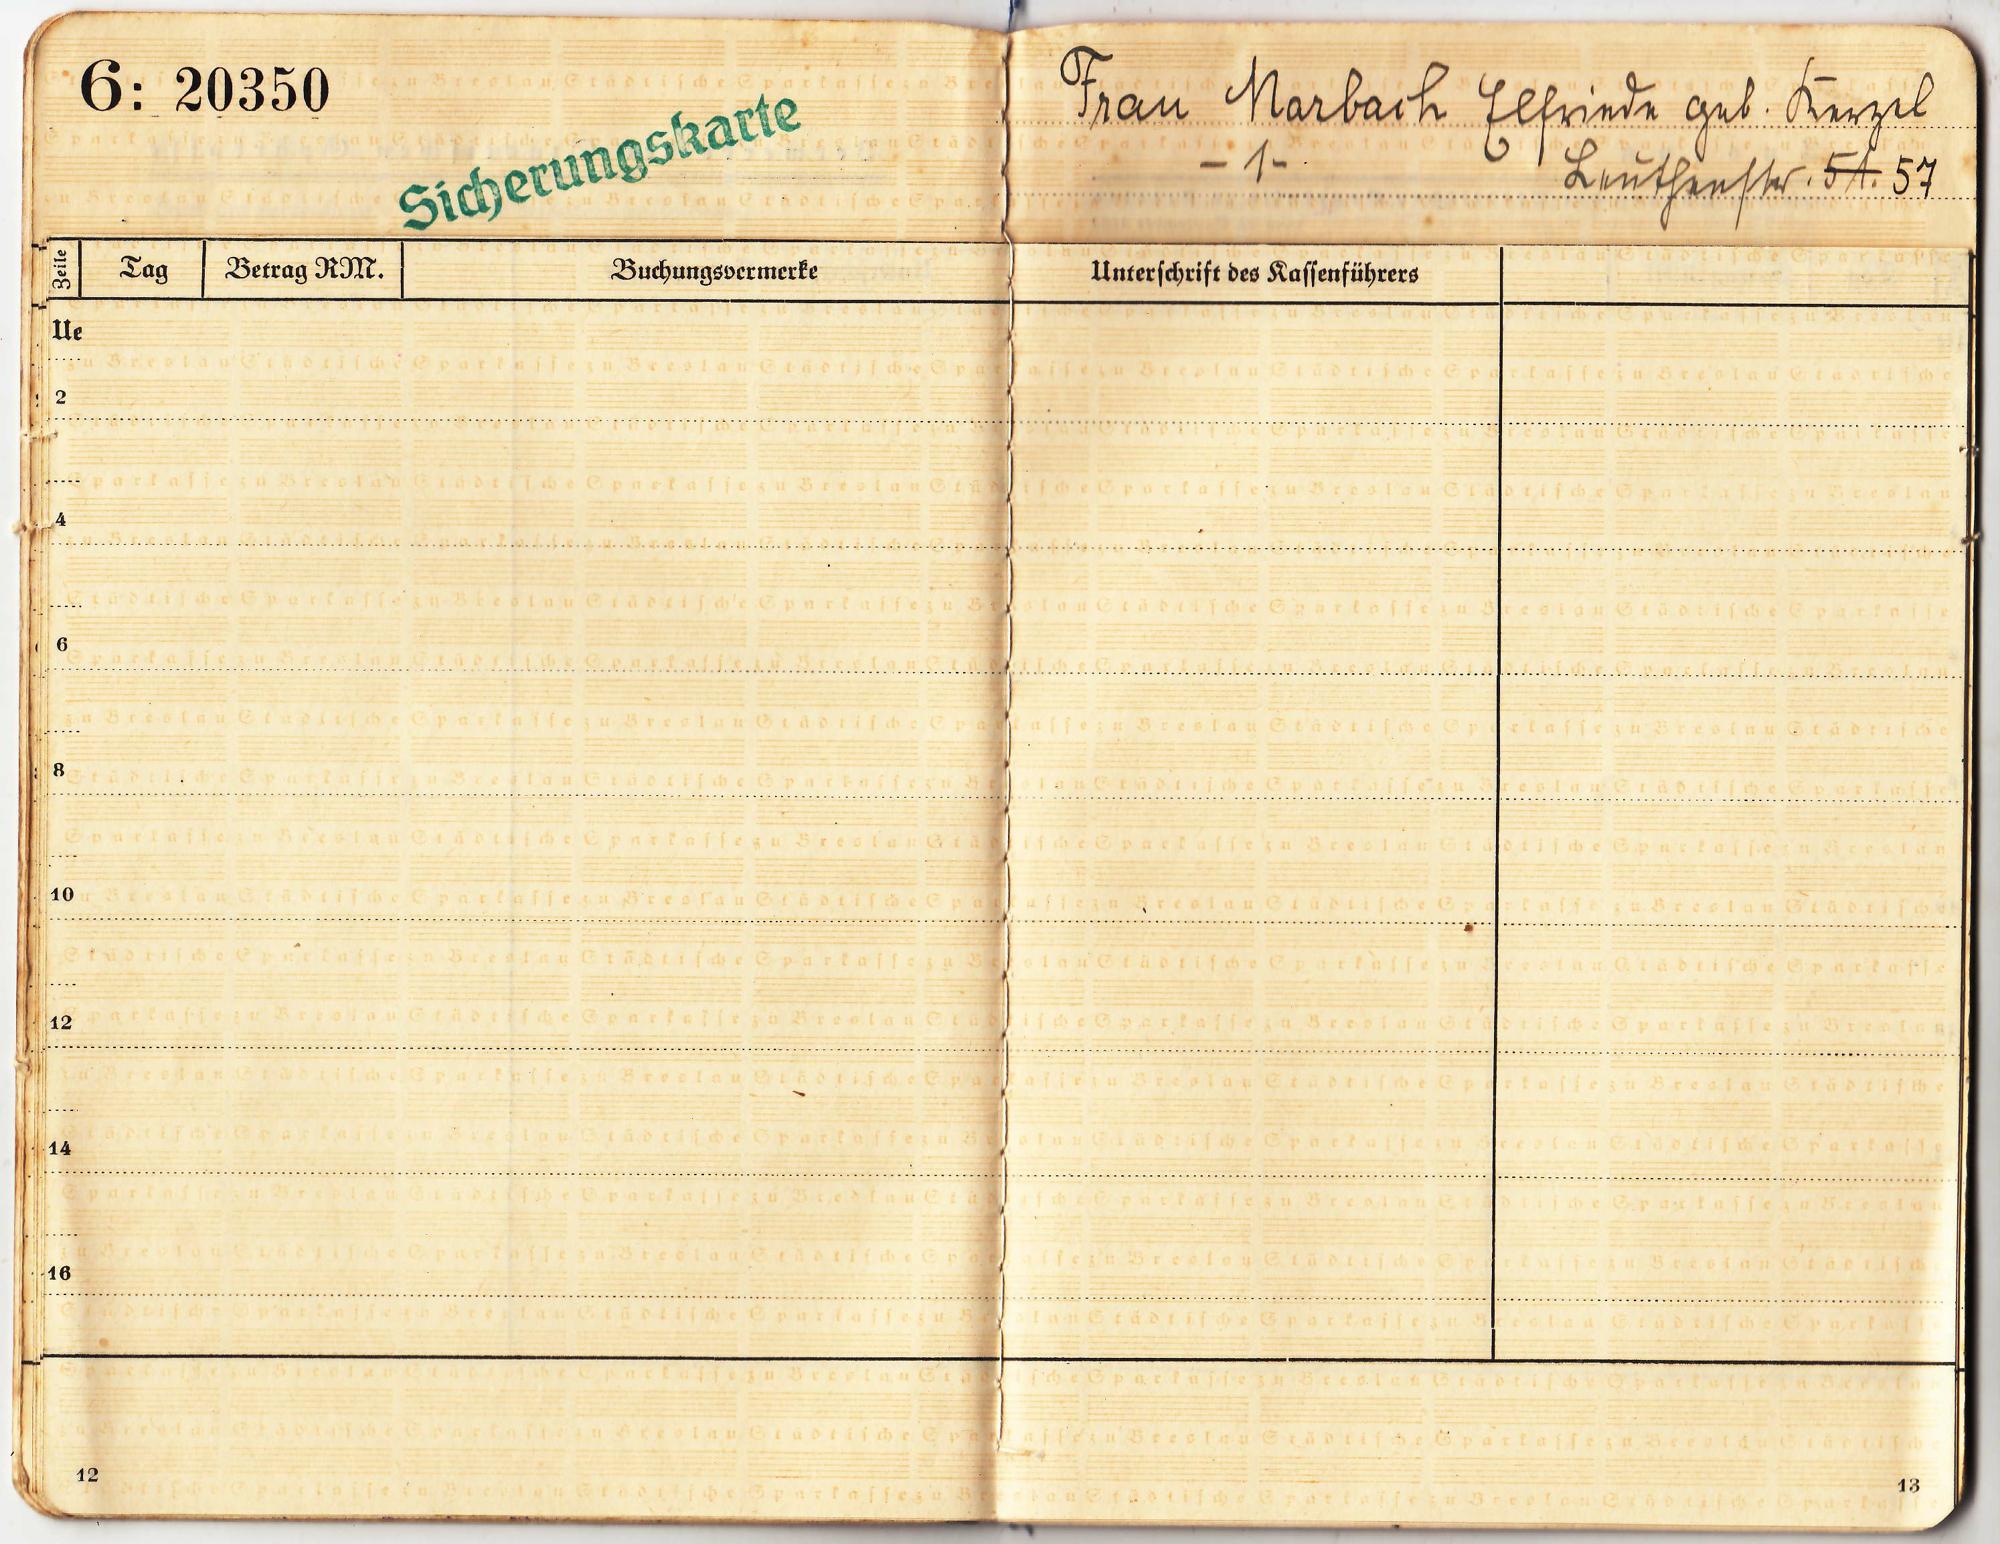 6: 20350
Sicherungskarte
Frau Marbach Elfriede geb. Kerzel
- 1 -
Leuthenstr. 51. 57
Zeile Tag Betrag RM. Buchungsvermerke Unterschrift des Kassenführers
Ue
2
4
6
8
10
12
14
16
12
13